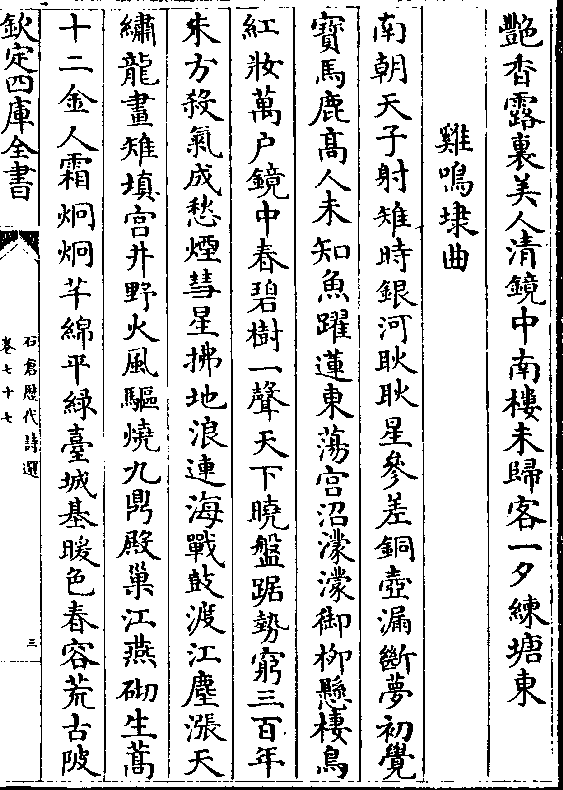 艷香露裏美人清鏡中南樓未歸客一夕練塘東
雞鳴埭曲
南朝天子射雉時銀河耿耿星參差銅壺漏斷夢初覺
寳馬鹿髙人未知魚躍蓮東蕩宫沼濛濛御柳懸棲鳥
紅妝萬户鏡中春碧樹一聲天下曉盤踞勢窮三百年
朱方殺氣成愁煙彗星拂地浪連海戰鼓渡江塵漲天
繡龍畫雉填宫井野火風驅燒九鼎殿巢江燕砌生蒿
十二金人霜炯炯芊綿平緑臺城基暖色春容荒古陂
欽定四庫全書
石倉歴代詩選
卷七十七
三